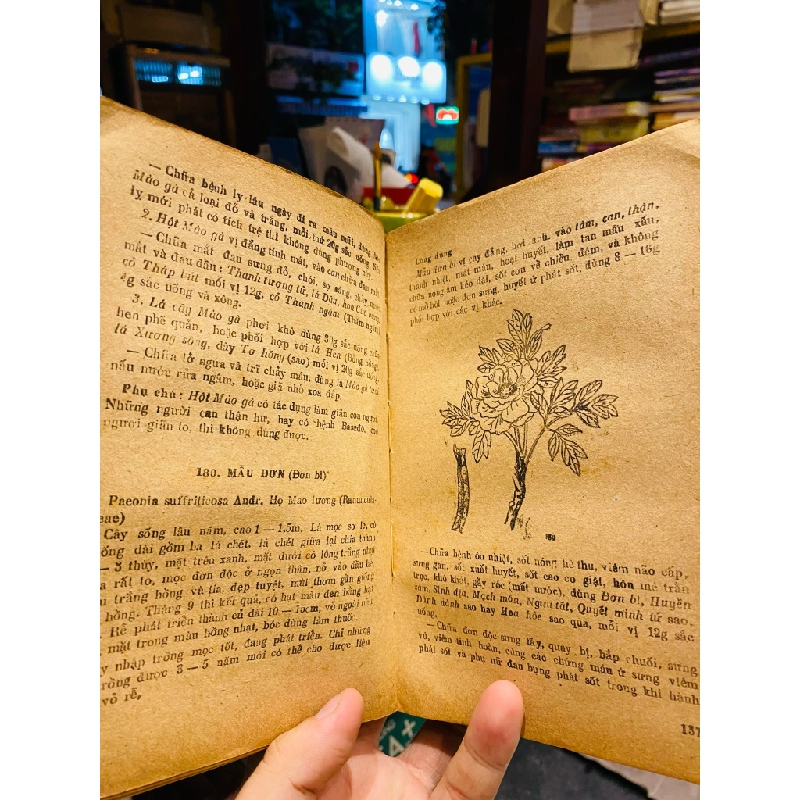 — Chữa bệnh lỵ lâu ngày đi ra máu mũi, dùng
Mào gà cả loại đỏ và trắng, mỗi thứ 20g sắc uống.
lỵ mới phát có tích trệ thì không dùng phương này.
2. Hột Mào gà vị đắng tính mát, vào can chữa đau mắt
— Chữa mắt đau sưng đỏ,
mắt và đau đầu: Thanh tương tử, lá Dâu, hoa Cúc,
cỏ Tháp bút mỗi vị 12g, cỏ Thanh ngâm
4g sắc uống và xông.
3. Lá cây Mào gà phơi khô dùng 30g sắc uống
hen phế quản, hoặc phối hợp với lá Hen
lá Xương sông, dây Tơ hồng (sao) mỗi vị 20g sắc uống
— Chữa lở ngứa và trĩ chảy máu, dùng lá Mào gà
nấu nước rửa ngâm, hoặc giã nhỏ xoa đắp.
Phụ chú: Hột Mào gà có tác dụng làm giãn con ngươi
Những người can thận hư, hay có bệnh Basedo,
ngươi giãn to, thì không dùng được.
180. MẪU ĐƠN (Đơn bì)
Paeonia suffriticosa Andr. Họ Mao lương
eae)
Cây sống lâu năm, cao 1 — 1,5m. Lá mọc so le, có
dài gồm ba lá chét, lá chét giữa lại chia
— 5 thùy, mặt trên xanh, mặt dưới có lông trắng nhạt
rất to, mọc đơn độc ở ngọn thân, nở vào đầu
trắng hồng và tía, đẹp tuyệt, mùi thơm gần giống
hồng. Tháng 9 thì kết quả, có hạt màu đen bằng hạt
Rễ phát triển thành củ dài 10 — vỏ ngoài
mặt trong màu hồng nhạt, bóc dùng làm thuốc.
nhập trồng mọc tốt, đang phát triển. Chỉ nhưng
trồng được 3 — 5 năm mới có thể cho dược liệu
vỏ rễ.
Công dụng
Mẫu đơn bì vị cay đắng, hơi vào tâm, can, thận.
thanh nhiệt, mát máu, hoạt huyết, làm tan máu xấu,
chữa nóng âm kéo dài, sốt cơn về chiều, đêm, và không
có mồ hôi, mặt đen sưng, huyết ứ phát sốt, dùng 8 — 16g
phối hợp với các vị khác.
180
— Chữa bệnh ôn nhiệt, sốt nóng hè thu, viêm não cấp,
sưng gan, sốt xuất huyết, sốt cao co giật, hôn mê trằn
trọc, khô khát, gầy róc (mất nước), dùng Đơn bì, Huyền
sâm, Sinh địa, Mạch môn, Ngưu tất, Quyết minh tử sao,
Dành dành sao hay Hoa hòe sao qua, mỗi vị 12g sắc
uống.
— Chữa đơn độc sưng tấy, quay bị, bắp chuối, sưng
vú, viêm tinh hoàn, cùng các chứng máu ứ sưng viêm
phát sốt và phụ nữ đau bụng phát sốt trong khi hành
137
A+